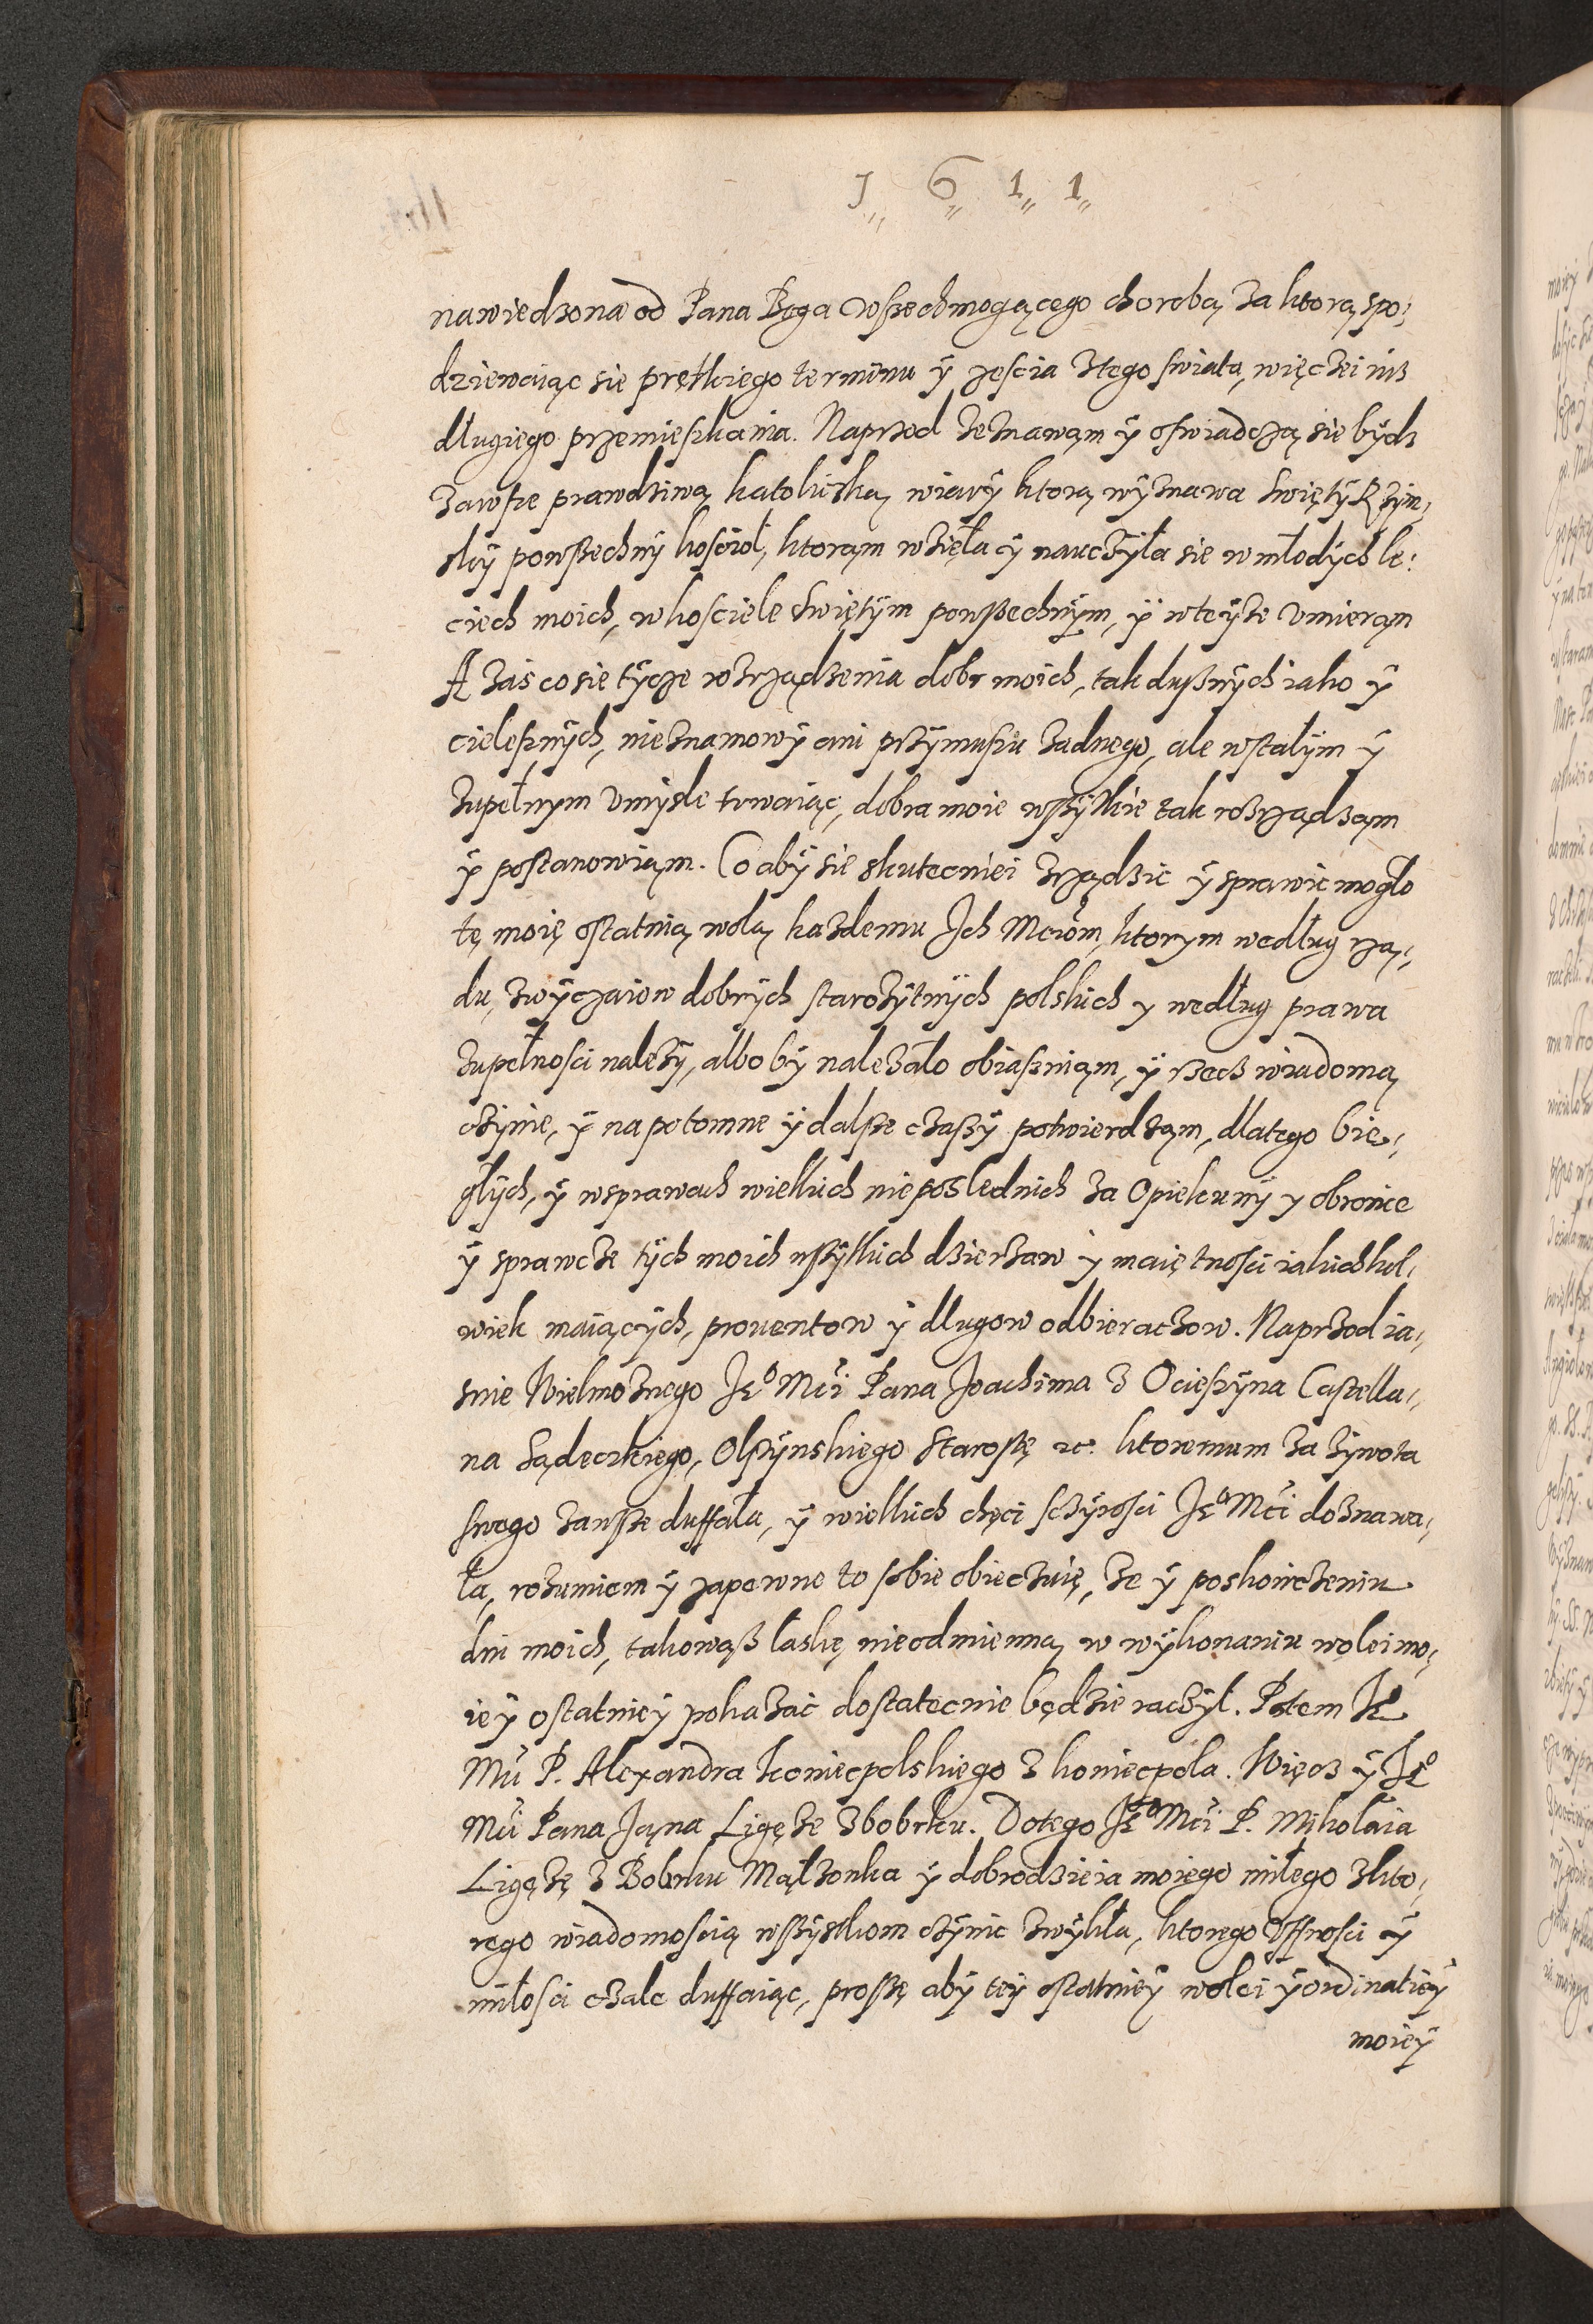 J„ 6„ 1„ 1„
nawiedzona od Pana Boga wszechmogącego chorobą za ktorą spo:
dziewaiąc sie prętkiego terminu ÿ ześcia ztego świata, więczei niz
długiego przemieszkania. Naprzod zeznawąm ÿ oświadczą sie bÿdz
zawsze prawdziwą katoliczką wiarÿ ktorą wÿznawa świętÿ Rzÿm:
skÿ powszechnÿ kośćioł, ktorąm wzięła ÿ nauczÿła sie w młodÿch le:
ciech moich, w kościele świętÿm powszechnÿm, ÿ w teÿze vmierąm
A zaś co sie tÿcze rozrządzenia dobr moich, tak dusznÿch iako ÿ
cielesznÿch, nieznamowÿ ani przÿmuszu zadnego, ale w stałÿm ÿ
zupełnym vmÿsle trwaiąc, dobra moie wszÿtkie tak rozrządząm
ÿ postanowiąm. Co abÿ sie skutecniei zrządzic ÿ sprawic mogło
tę moię ostatnią wolą kazdemu Jch Mciom, ktorym według rzą:
du, zwÿczaiow dobrÿch starozÿtnÿch polskich y według prawa
zupełnosci nalezÿ, albo bÿ nalezało obiaszniąm, ÿ rzecz wiadomą
czÿnie, ÿ na potomne ÿ dalsze czaszÿ potwierdząm, dlatego bie:
głÿch, ÿ wsprawach wielkich nieposlednich za Opiekunÿ y obronce
ÿ sprawcze tÿch moich wszÿtkich dzierzaw ÿ maiętnosci iakichkol:
wiek maiącÿch, prouentow ÿ długow odbieraczow. Naprzod ia:
snie Wielmoznego Je° Mći Pana Joachima z Ocieszÿna Castella:
na Sądeczkiego, Olszÿnskiego Starostę etc. ktoremum za zÿwota
swego zawsze duffała, ÿ wielkich chęci sczÿrosci Je° Mći doznawa:
ła, rozumiem ÿ zapewne to sobie obieczuię, ze ÿ poskonczeniu
dni moich, takowąsz łaskę nieodmienną w wÿkonaniu woleimo:
ieÿ ostatnieÿ pokazać dostatecnie będzie raczÿł. Potem Je°
Mći P. Alexandra Koniecpolskiego z koniecpola. Więcz ÿ Je°
Mći Pana Jąna Ligęze zbobrku. Dotego Je° Mći P. Mikołaia
Ligęzę z Bobrku Mąłzonka ÿ dobrodzieia moiego miłego zkto:
rego wiadomoscią wszÿstkom czÿnic zwÿkła, ktorego vffnosci ÿ
miłosci czale duffaiąc, proszę abÿ teÿ ostatnieÿ wolei ÿ ordinatieÿ
moieÿ